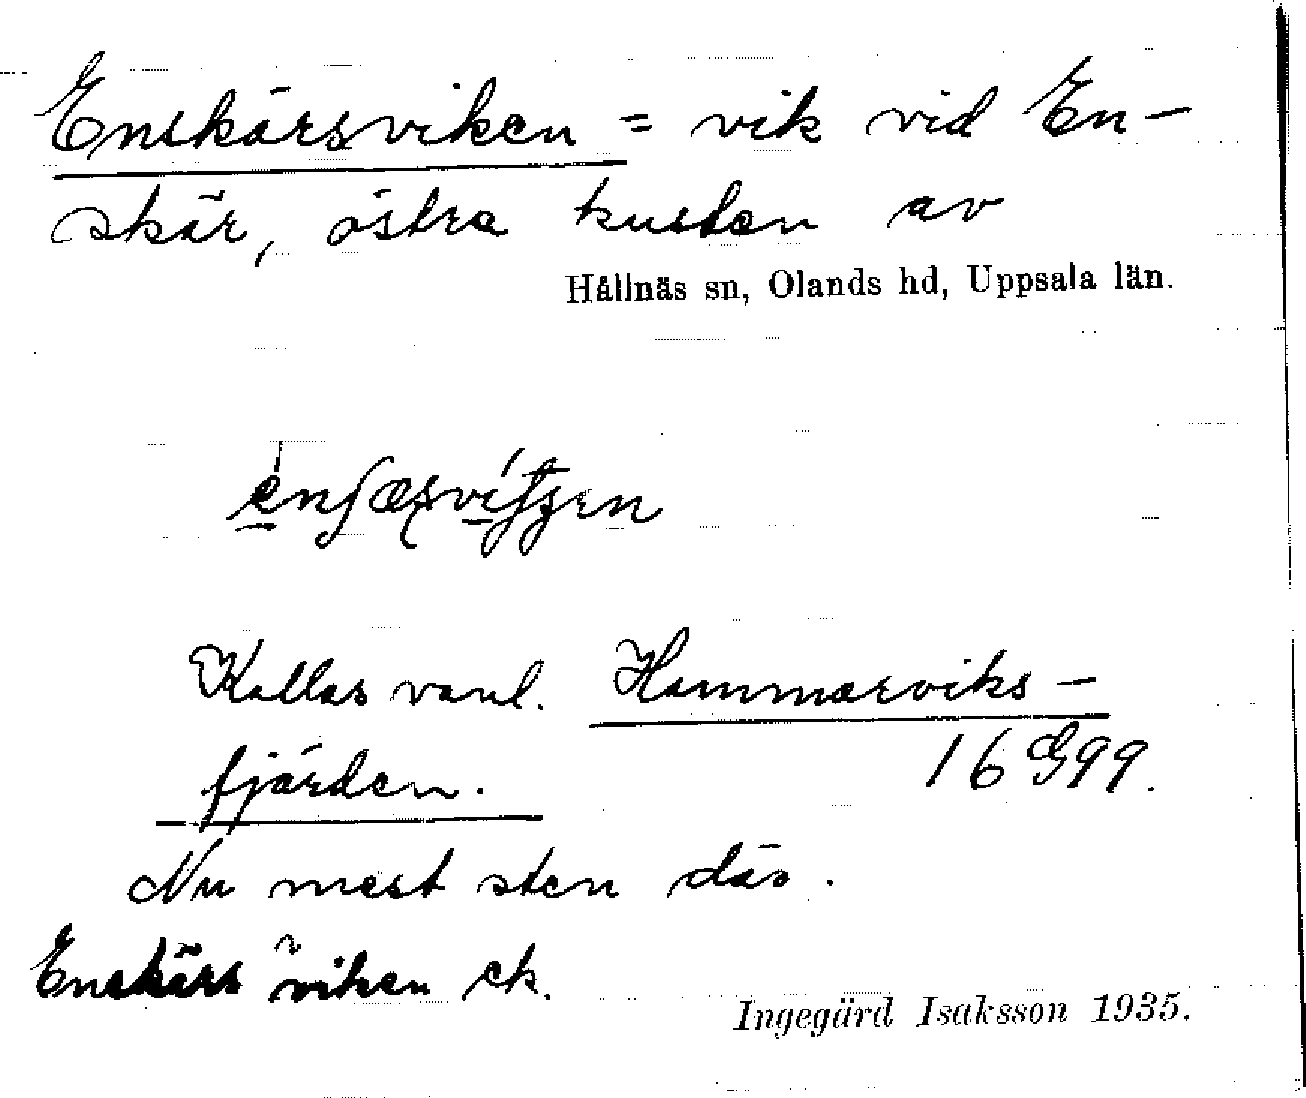 Enskärsviken = vik vid En-
skär, östra kusten av
Hållnäs sn, Olands hd, Uppsala län.
Kallas vanl. Hammarviks-
fjärden. 16 G99.
Nu mest sten där.
Enskärs viken ek.
Ingegärd Isaksson 1935.